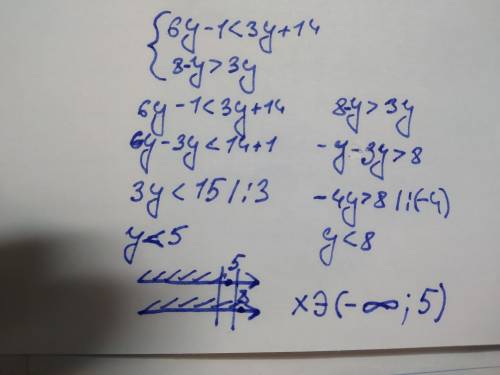 { 6y-1<3y+14
8-y>3y
6y-1<3y+14
6y-3y<14+1
3y<15 /:3
y<5
8-y>3y
-y-3y>8
-4y>8 /:(-4)
y<8
5
8
x∃(-∞; 5)